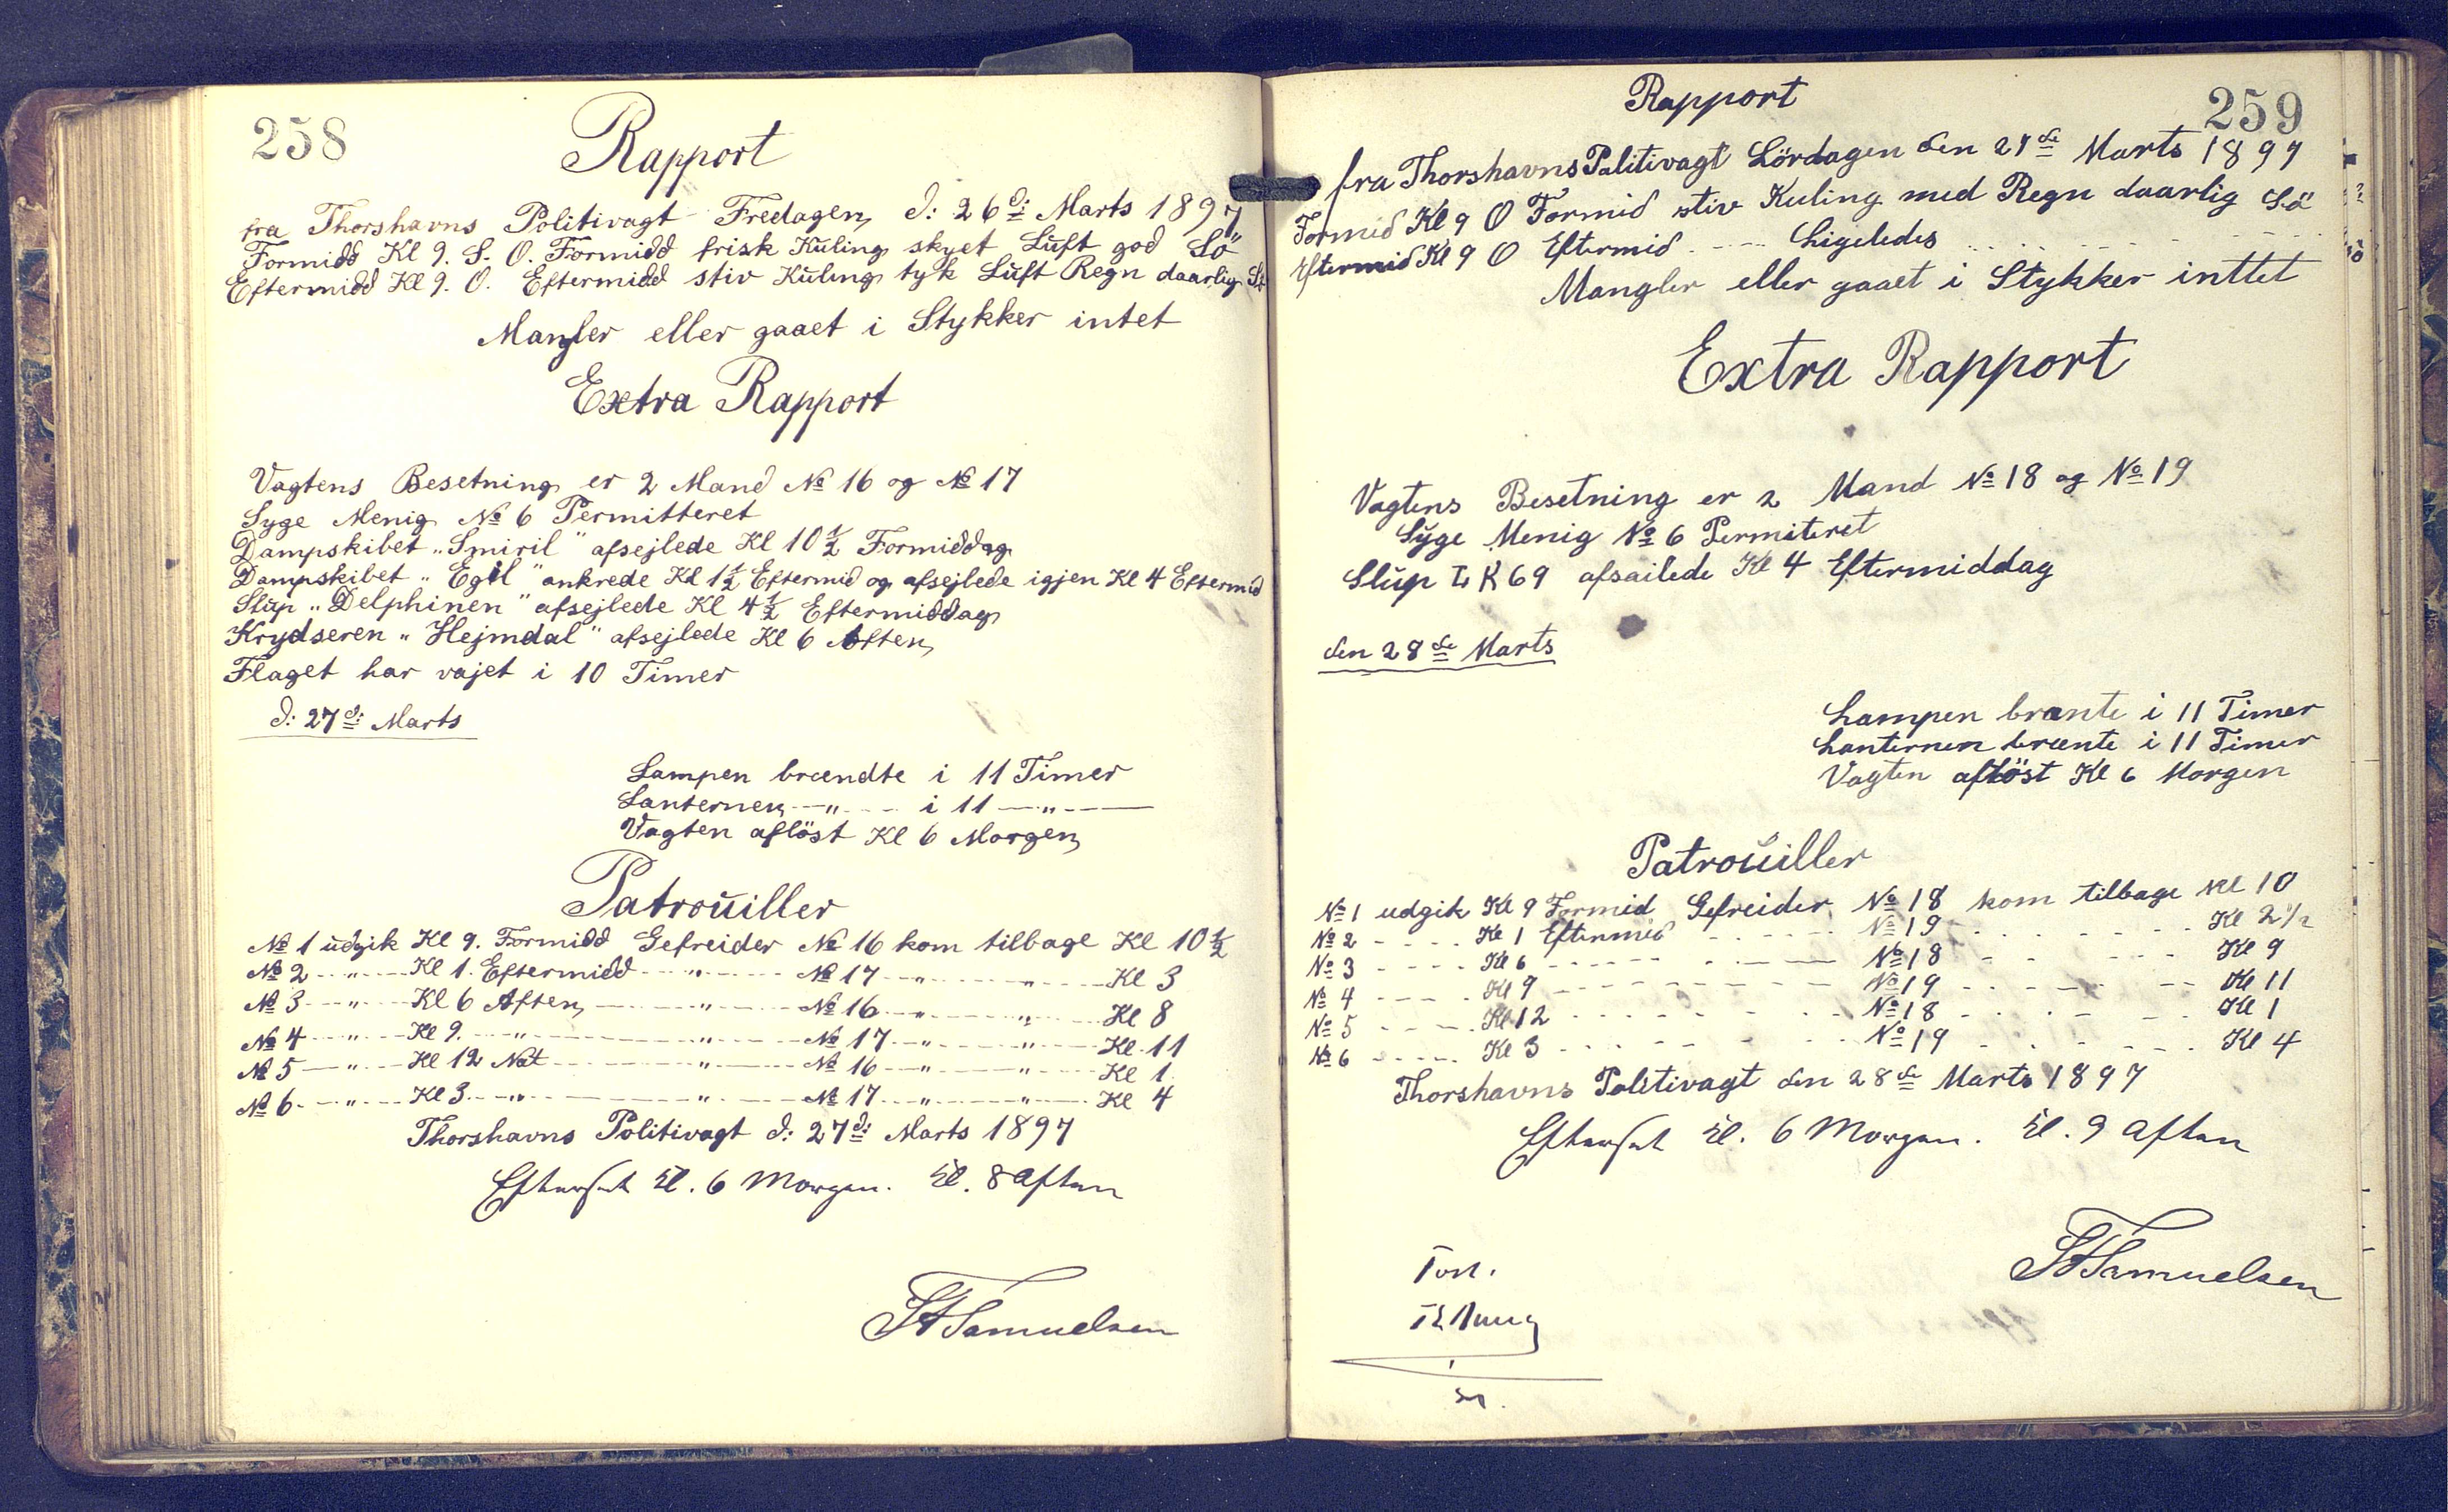 258
Rapport
fra Thorshavns Politivagt Fredagen, d: 26d: Marts 1897
Formidd Kl 9. S. O. Formidd frisk Kuling skyet Luft god Sö
Eftermidd Kl 9. O. Eftermidd stiv Kuling tyk Luft Regn daarlig Sö
Mangler eller gaaet i Stykker intet
Extra Rapport
Vagtens Besetning er 2 Mand № 16 og № 17
Syge Menig № 6 Permitteret
Dampskibet „Smiril" afsejlede Kl 10½ Formiddag
Dampskibet „Egil" ankrede Kl 1½ Eftermid og afsejlede igjen Kl 4 Eftermid
Slup „Delphinen" afsejlede Kl 4½ Eftermiddag
Krydseren „Hejmdal" afsejlede Kl 6 Aften,
Flaget har vajet i 10 Timer
d: 27d: Marts
Lampen brændte i 11 Timer
Lanternen — „ — i 11 — „ —
Vagten aflöst Kl 6 Morgen,
Patrouiller
№ 1 udgik Kl 9. Formidd Gefreider № 16 kom tilbage Kl 10½
№ 2 — „ — Kl 1. Eftermidd — „ — № 17 — „ — „ — Kl 3
№ 3 — „ — Kl 6 Aften, — „ — № 16 — „ — „ — Kl 8
№ 4 — „ — Kl 9. — „ — „ — № 17 — „ — „ — Kl 11
№ 5 — „ — Kl 12 Nat — „ — № 16 — „ — „ — Kl 1
№ 6 — „ — Kl 3 — „ — „ — № 17 — „ — „ — Kl 4
Thorshavns Politivagt d: 27d: Marts 1897
Efterset Kl. 6 Morgen. Kl. 8 Aften
Samuelsen
259
Rapport
fra Thorshavns Politivagt Lördagen den 27de Marts 1897
Formid Kl 9 O Formid stiv Kuling med Regn daarlig Sö
Eftermid Kl 9 O Eftermid - - - - Ligeledes - - - -
Mangler eller gaaet i Stykker inttet
Extra Rapport
Vagtens Besetning er 2 Mand № 18 og № 19
Syge Menig № 6 Permiteret
Slup T K 69 afsailede Kl 4 Eftermiddag
den 28de Marts
Lampen brænte i 11 Timer
Lanternen brænte i 11 Timer
Vagten aflöst Kl 6 Morgen
Patrouiller
№ 1 udgik Kl 9 Formid Gefreider № 18 kom tilbage Kl 10
№ 2 - - - - Kl 1 Eftermid - - - - № 19 - - - - Kl 2½
№ 3 - - - - Kl 6 - - - - № 18 - - - - Kl 9
№ 4 - - - - Kl 9 - - - - № 19 - - - - Kl 11
№ 5 - - - - Kl 12 - - - - № 18 - - - - Kl 1
№ 6 - - - - Kl 3 - - - - № 19 - - - - Kl 4
Thorshavns Politivagt den 28de Marts 1897
Efterset Kl. 6 Morgen. Kl. 9 Aften
Samuelsen